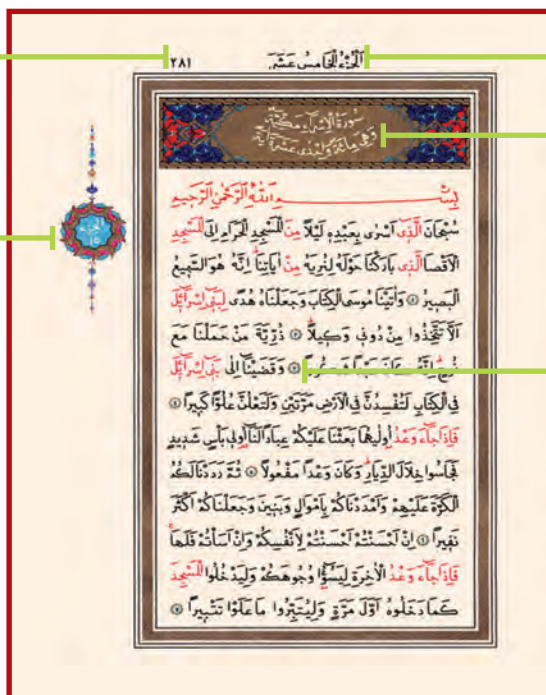 اَلْجُزْءُ الْخَامِسُ عَشَرَ ٢٨١
سُورَةُ الْاِسْرَٓاءِ مَكِّيَّةٌ
وَهِيَ مِائَةٌ وَاِحْدٰى عَشْرَةَ اٰيَةً
بِسْمِ اللّٰهِ الرَّحْمٰنِ الرَّحِيمِ
سُبْحَانَ الَّذِٓي اَسْرٰى بِعَبْدِهِ لَيْلًا مِنَ الْمَسْجِدِ الْحَرَامِ اِلَى الْمَسْجِدِ
الْاَقْصَا الَّذِي بَارَكْنَا حَوْلَهُ لِنُرِيَهُ مِنْ اٰيَاتِنَا اِنَّهُ هُوَ السَّمِيعُ
الْبَصِيرُ ١ وَاٰتَيْنَا مُوسَى الْكِتَابَ وَجَعَلْنَاهُ هُدًى لِبَنِٓي اِسْرَٓائِلَ
اَلَّا تَتَّخِذُوا مِنْ دُونِي وَكِيلًا ٢ ذُرِّيَّةَ مَنْ حَمَلْنَا مَعَ
نُوحٍ اِنَّهُ كَانَ عَبْدًا شَكُورًا ٣ وَقَضَيْنَٓا اِلٰى بَنِٓي اِسْرَٓائِلَ
فِي الْكِتَابِ لَتُفْسِدُنَّ فِي الْاَرْضِ مَرَّتَيْنِ وَلَتَعْلُنَّ عُلُوًّا كَبِيرًا ٤
فَاِذَا جَٓاءَ وَعْدُ اُو۫لٰيهُمَا بَعَثْنَا عَلَيْكُمْ عِبَادًا لَنَٓا اُو۬لِي بَأْسٍ شَدِيدٍ
فَجَاسُوا خِلَالَ الدِّيَارِ وَكَانَ وَعْدًا مَفْعُولًا ٥ ثُمَّ رَدَدْنَا لَكُمُ
الْكَرَّةَ عَلَيْهِمْ وَاَمْدَدْنَاكُمْ بِاَمْوَالٍ وَبَنِينَ وَجَعَلْنَاكُمْ اَكْثَرَ
نَفِيرًا ٦ اِنْ اَحْسَنْتُمْ اَحْسَنْتُمْ لِاَنْفُسِكُمْ وَاِنْ اَسَأْتُمْ فَلَهَا
فَاِذَا جَٓاءَ وَعْدُ الْاٰخِرَةِ لِيَسُٓؤُ۫ا وُجُوهَكُمْ وَلِيَدْخُلُوا الْمَسْجِدَ
كَمَا دَخَلُوهُ اَوَّلَ مَرَّةٍ وَلِيُتَبِّرُوا مَا عَلَوْا تَتْبِيرًا ٧